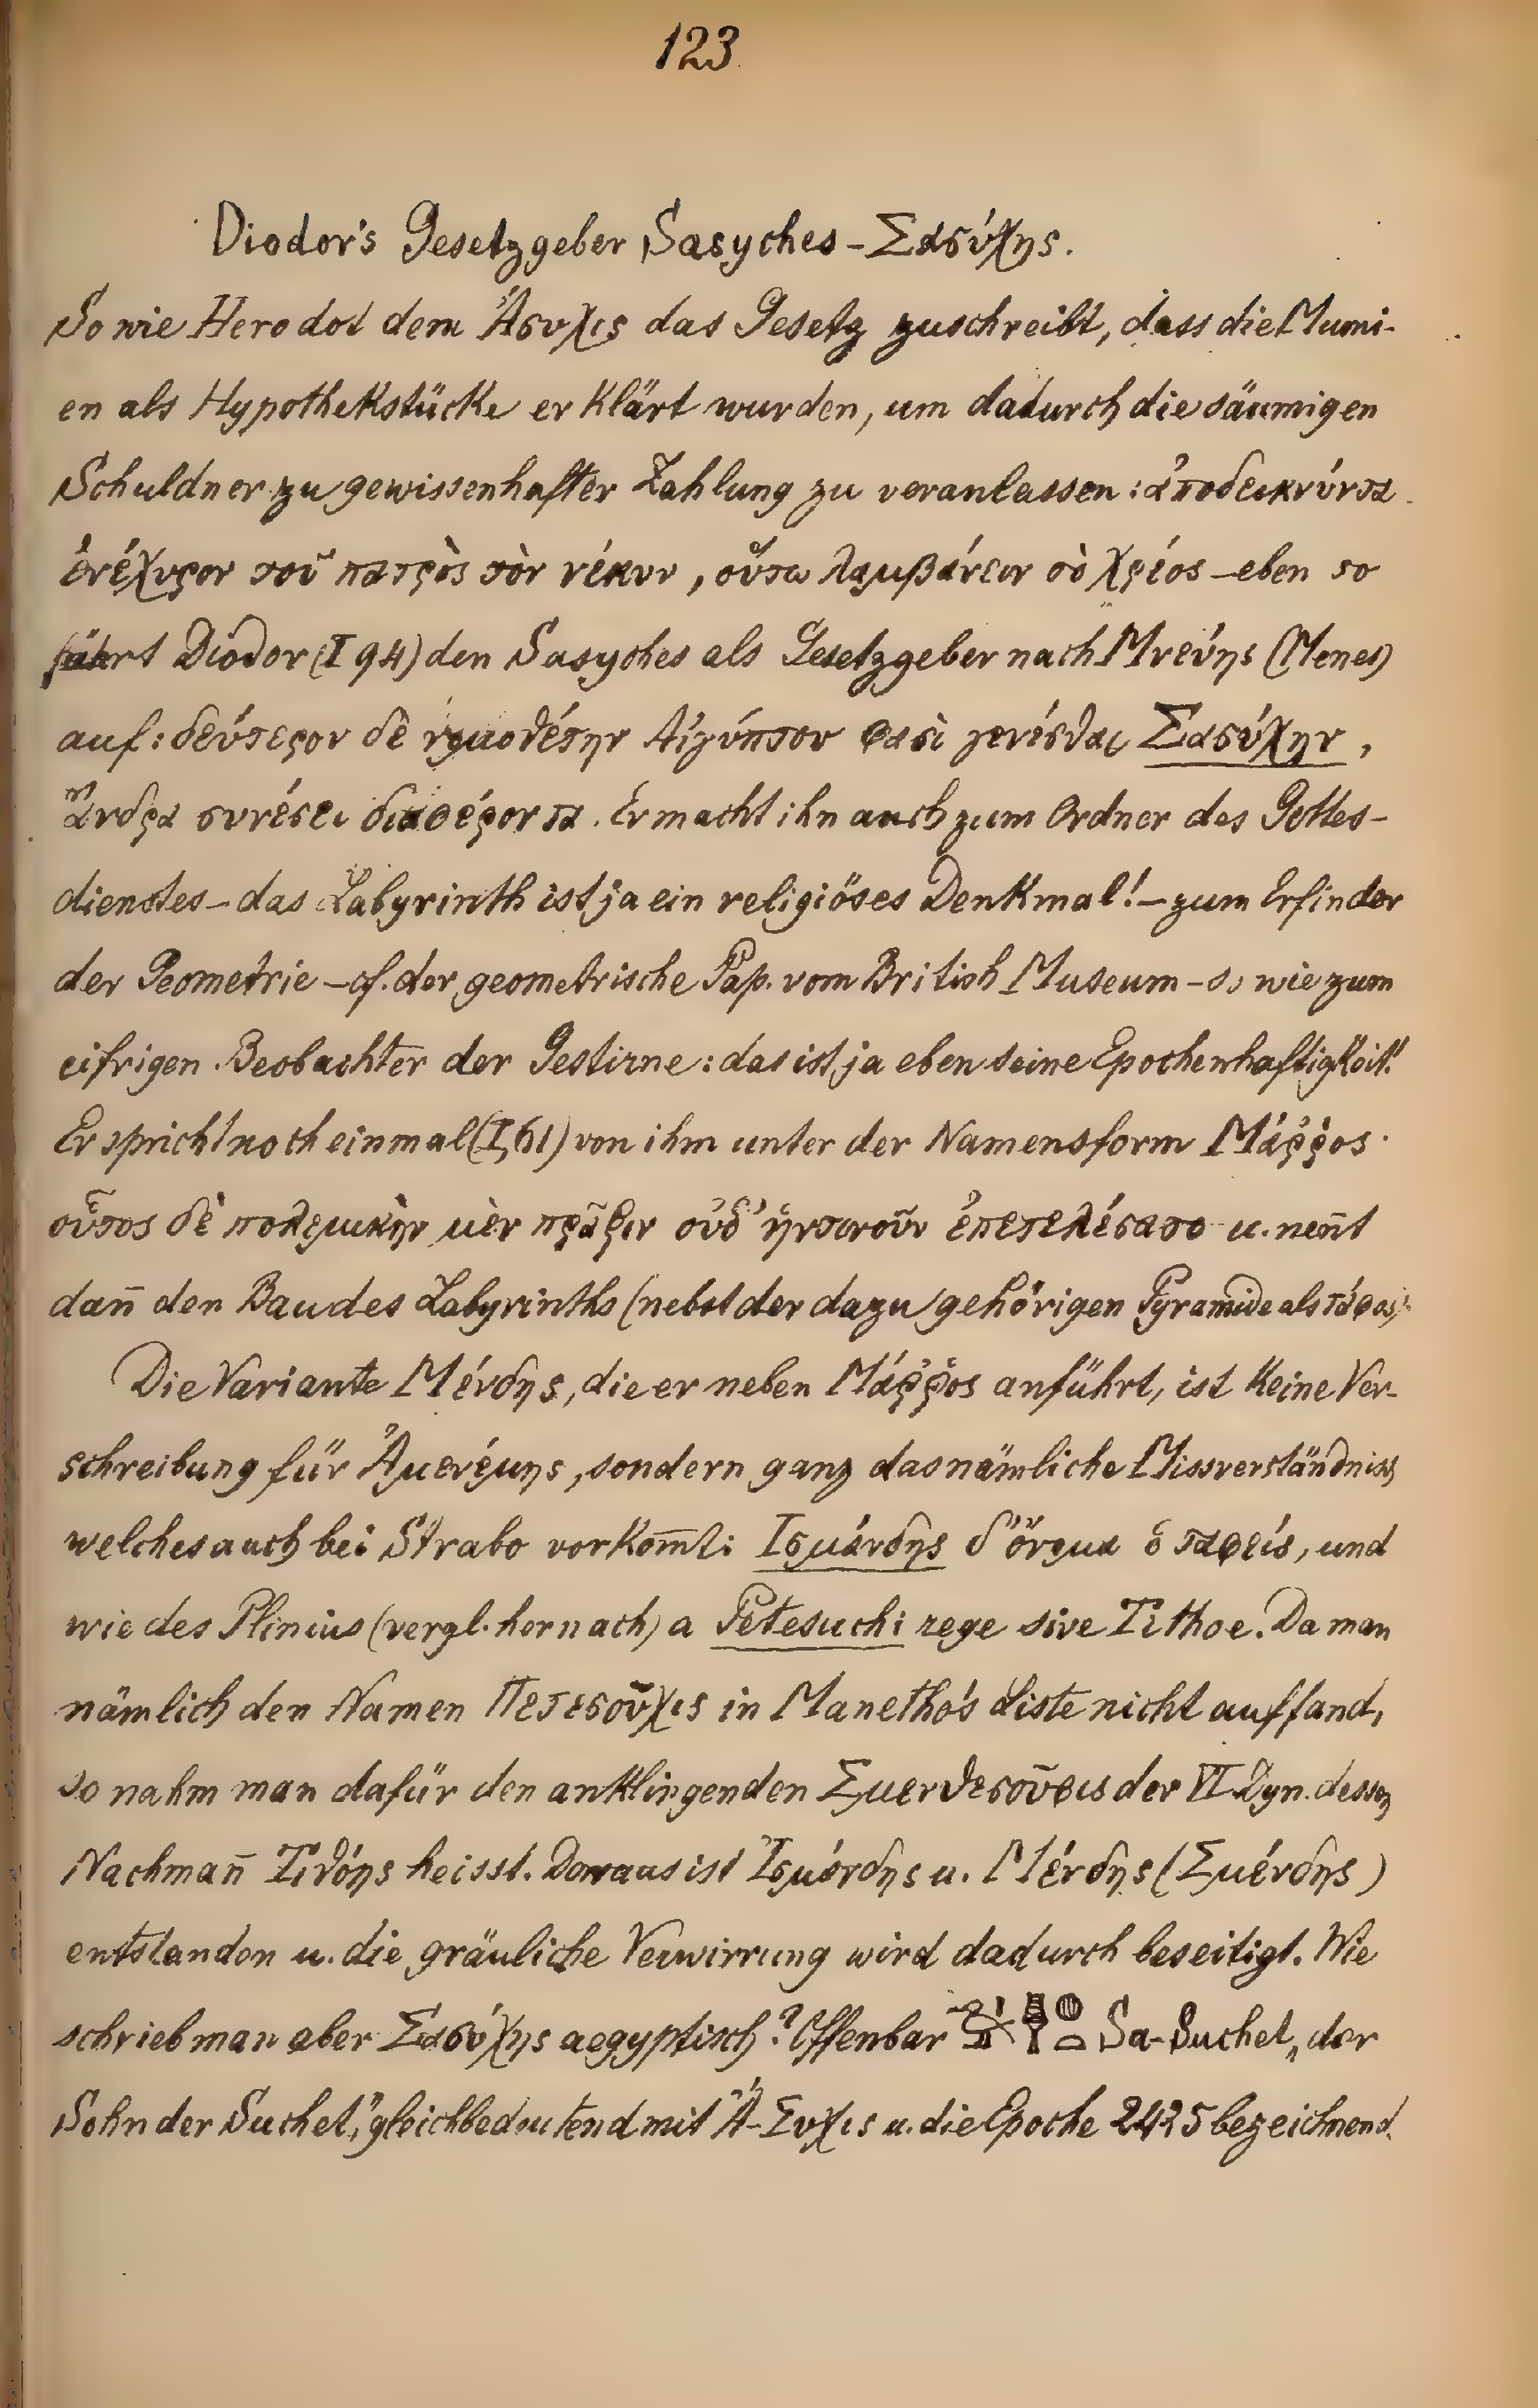 123
Diodor's Gesetzgeber Sasyches – Σασύχης.
So wie Herodot dem Ἄσυχις das Gesetz zuschreibt, dass die Mumi-
en als Hypothekstücke erklärt wurden, um dadurch die säumigen
Schuldner zu gewissenhafter Zahlung zu veranlassen: ἀποδεικνύντα
ἐνέχυρον τοῦ πατρὸς τὸν νέκυν, οὕτω λαμβάνειν τὸ χρέος – eben so
führt Diodor (I 94) den Sasyches als Gesetzgeber nach Μνεύης (Menes)
auf: δεύτερον δὲ νομοθέτην Αἰγύπτου φασὶ γενέσθαι Σασύχην,
ἄνδρα συνέσει διαφέροντα. Er macht ihn auch zum Ordner des Gottes-
dienstes – das Labyrinth ist ja ein religiöses Denkmal! – zum Erfinder
der Geometrie – cf. der geometrische Pap. vom British Museum – so wie zum
eifrigen Beobachter der Gestirne: das ist ja eben seine Epochenhaftigkeit!
Er spricht noch einmal (I, 61) von ihm unter der Namensform Μάῤῥος·
οὗτος δὲ πολεμικὴν μὲν πρᾶξιν οὐδ' ἡντινοῦν ἐπετελέσατο u. nen̄t
dan̄ den Bau des Labyrinths (nebst der dazu gehörigen Pyramide als τάφος).
Die Variante Μένδης, die er neben Μάῤῥος anführt, ist keine Ver-
schreibung für Ἀμενέμης, sondern ganz das nämliche Missverständniss
welches auch bei Strabo vorkom̄t: Ισμάνδης δ' ὄνομα ὁ ταφείς, und
wie des Plinius (vergl. hernach) a Petesuchi rege sive Tithoe. Da man
nämlich den Namen Πετεσοῦχις in Manetho's Liste nicht auffand,
so nahm man dafür den anklingenden Σμενθεσοῦφις der VI Dyn. dessen
Nachman̄ Τιθόης heisst. Daraus ist Ἰσμάνδης u. Μένδης (Σμένδης)
entstanden u. die gräuliche Verwirrung wird dadurch beseitigt. Wie
schrieb man aber Σασύχης aegyptisch? Offenbar Sa-Suchet „der
Sohn der Suchet," gleichbedeutend mit Ἄ-Συχις u. die Epoche 2425 bezeichnend.